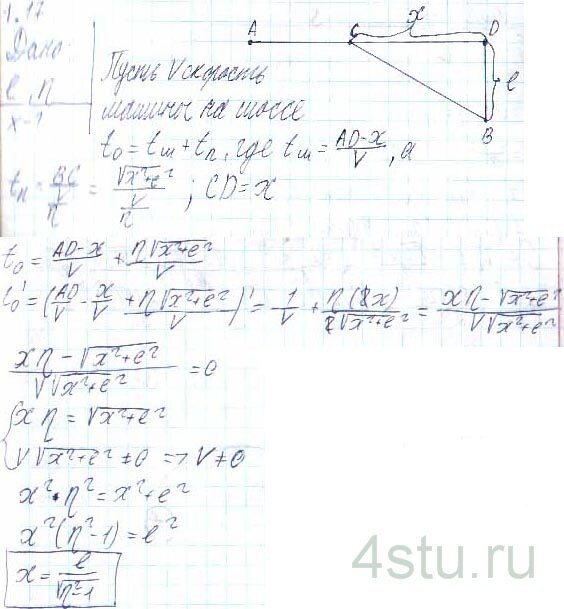 1.17
Дано:
l, η
x-?
A C x D
l
B
Пусть V скорость
машины на шоссе
t₀ = tш + tп, где tш = (AD-x)/V, а
tп = BC/(V/η) = √(x²+l²)/(V/η); CD = x
t₀ = (AD-x)/V + η√(x²+l²)/V
t₀' = (AD/V - x/V + η√(x²+l²)/V)' = 1/V + η(2x)/(2√(x²+l²)) = (xη - √(x²+l²))/(V√(x²+l²))
(xη - √(x²+l²))/(V√(x²+l²)) = 0
{ xη = √(x²+l²)
V√(x²+l²) ≠ 0 => V ≠ 0
x² · η² = x² + l²
x²(η²-1) = l²
x = l/√(η²-1)
4stu.ru